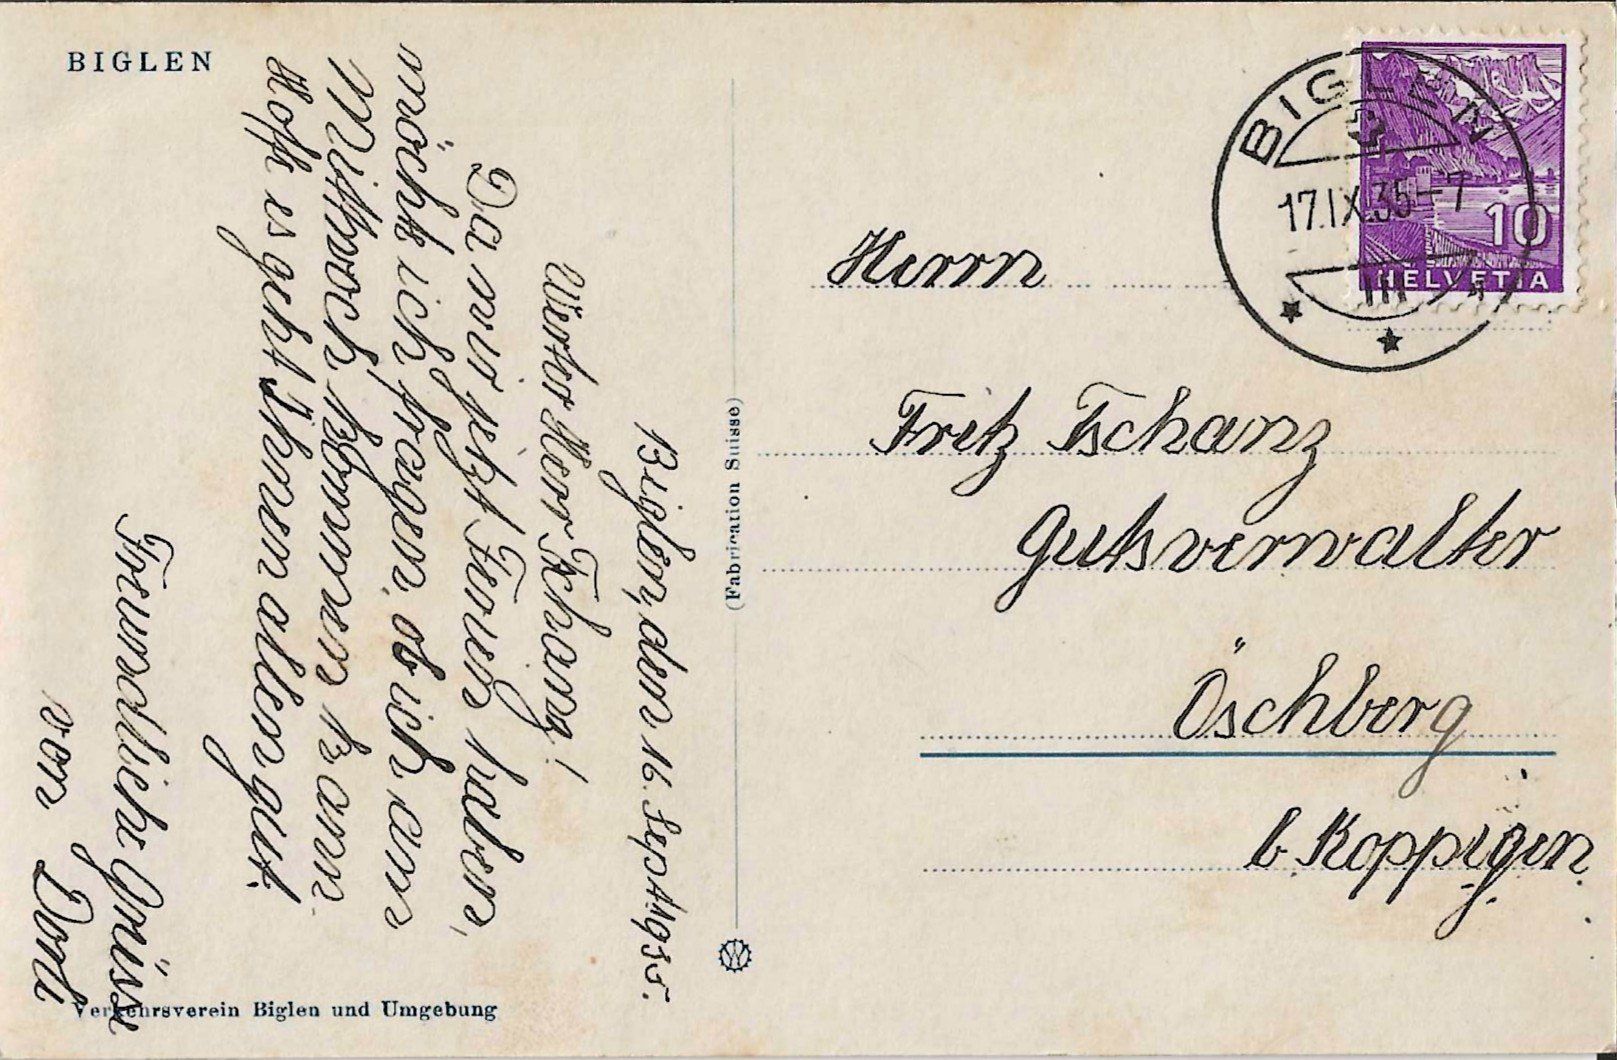 BIGLEN
Biglen, den 16. Sept. 1935.
Werter Herr Tschanz!
Da wir jetzt Ferien haben,
möchte ich fragen, ob ich am
Mittwoch kommen kann.
Hoffe es geht Ihnen allen gut.
Freundliche Grüsse
von Dorli
Verkehrsverein Biglen und Umgebung
(Fabrication Suisse)
BIGLEN
17.IX.35-7
10
HELVETIA
Herrn
Fritz Tschanz
Gutsverwalter
Öschberg
b. Koppigen.